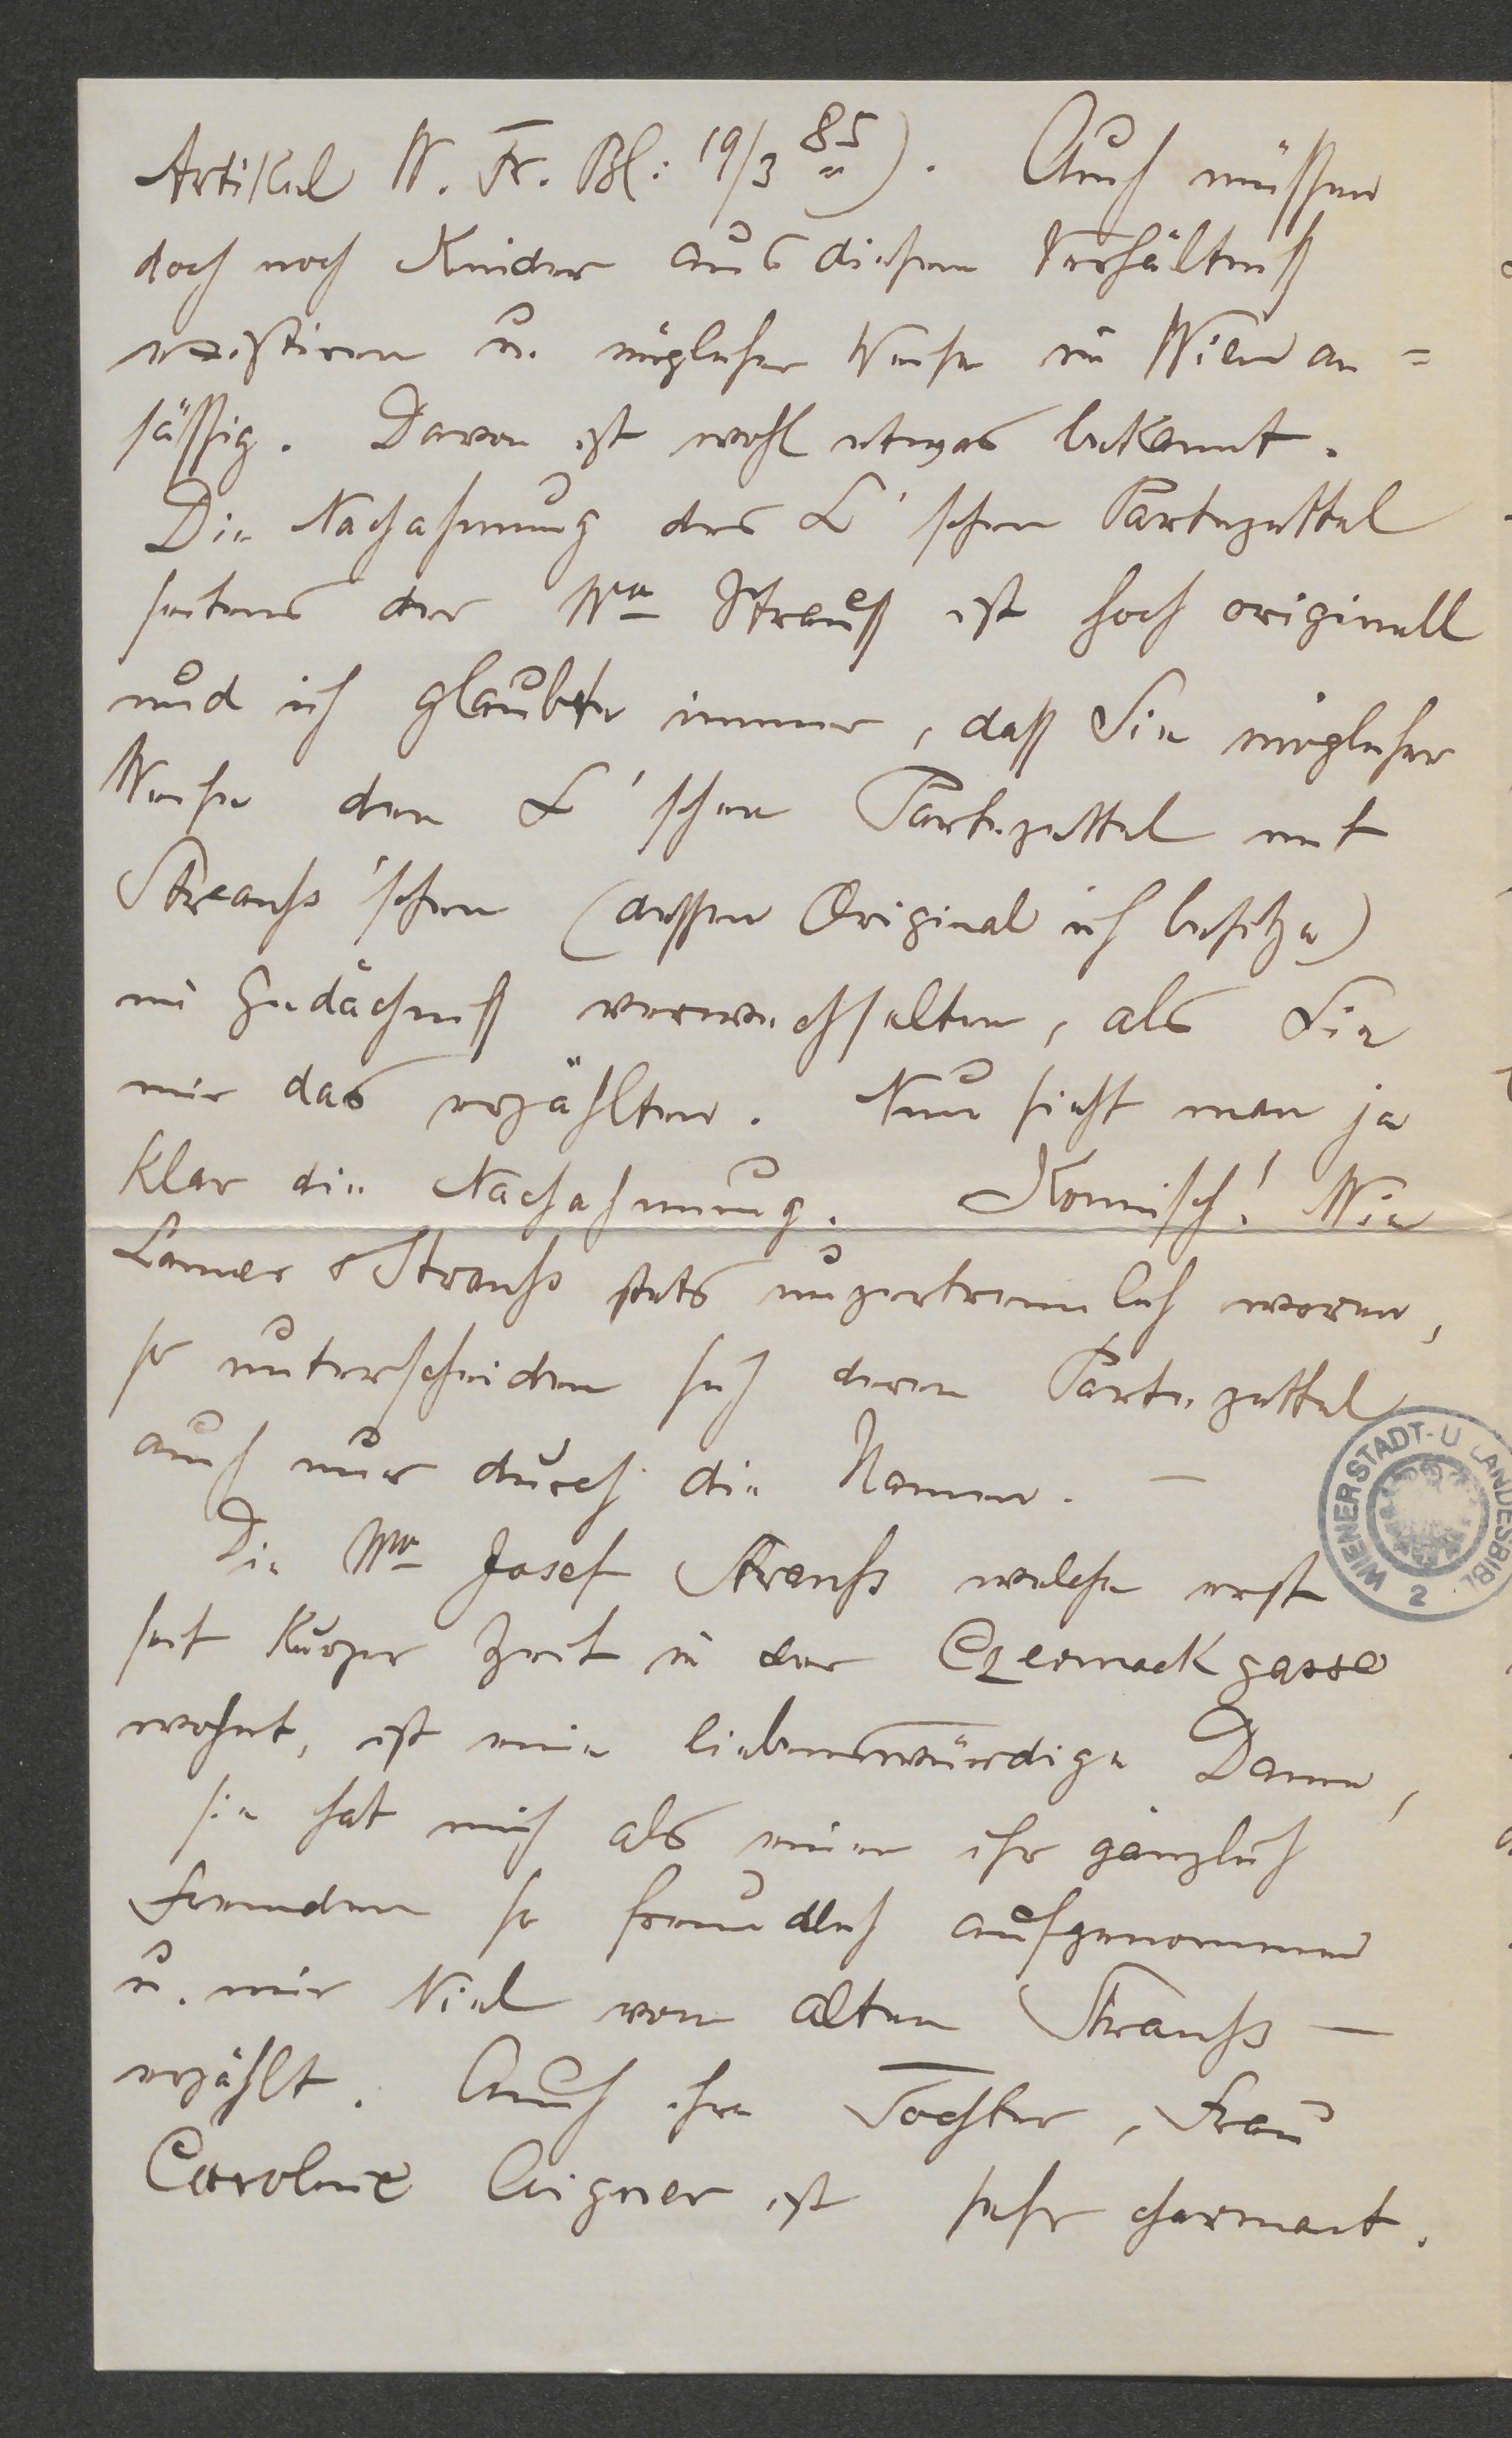 Artikel N. Fr. Bl: 19/3 85). Auch müssen
doch noch Kinder aus diesem Verhältniß
existiren u. möglicher Weise in Wien an=
sässig. Davon ist wohl etwas bekannt.
Die Nachahmung des L'schen Partezettel
seitens der Wwe Strauß ist hoch originell
und ich glaubte immer, daß Sie möglicher
Weise den L'schen Partezettel mit
Strauss'schen (dessen Original ich besitze)
im Gedächniß verwechselten, als Sie
mir das erzählten. Nun sieht man ja
klar die Nachahmung. Komisch! Wie
Lanner & Strauss stets unzertrennlich waren,
so unterscheiden sich deren Partezettel
auch nur durch die Namen. —
Die Wwe Josef Strauss welche erst
seit kurzer Zeit in der Czermackgasse
wohnt, ist eine liebenswürdige Dame,
sie hat mich als einen ihr gänzlich
Fremden so freundlich aufgenommen
u. mir Viel vom alten Strauss —
erzählt. Auch ihre Tochter, Frau
Caroline Aigner ist sehr charmant.
WIENER STADT- U LANDESBIBL.
2